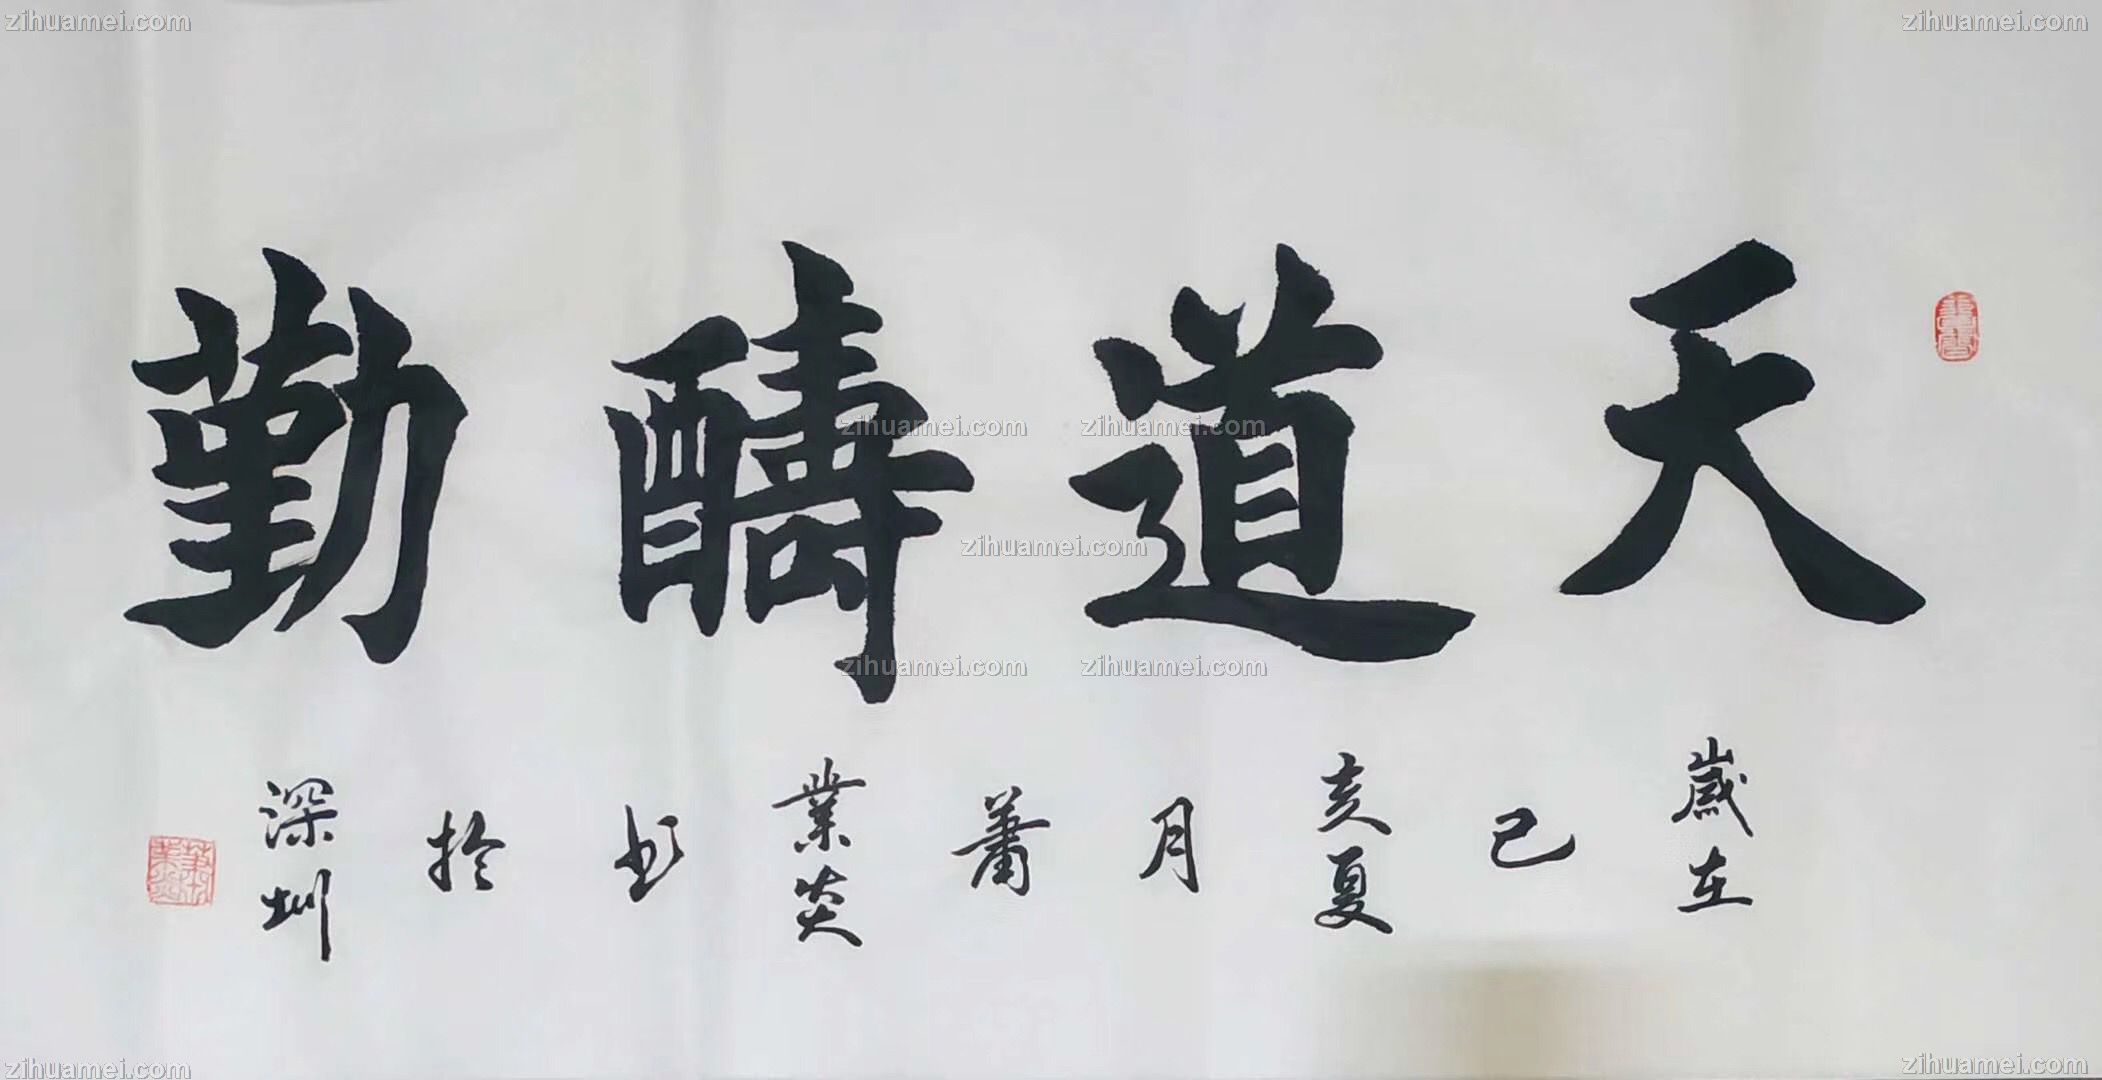 天道酬勤
歲在己亥夏月蕭業炎书於深圳
zihuamei.com
zihuamei.com
zihuamei.com
zihuamei.com
zihuamei.com
zihuamei.com
zihuamei.com
zihuamei.com
zihuamei.com